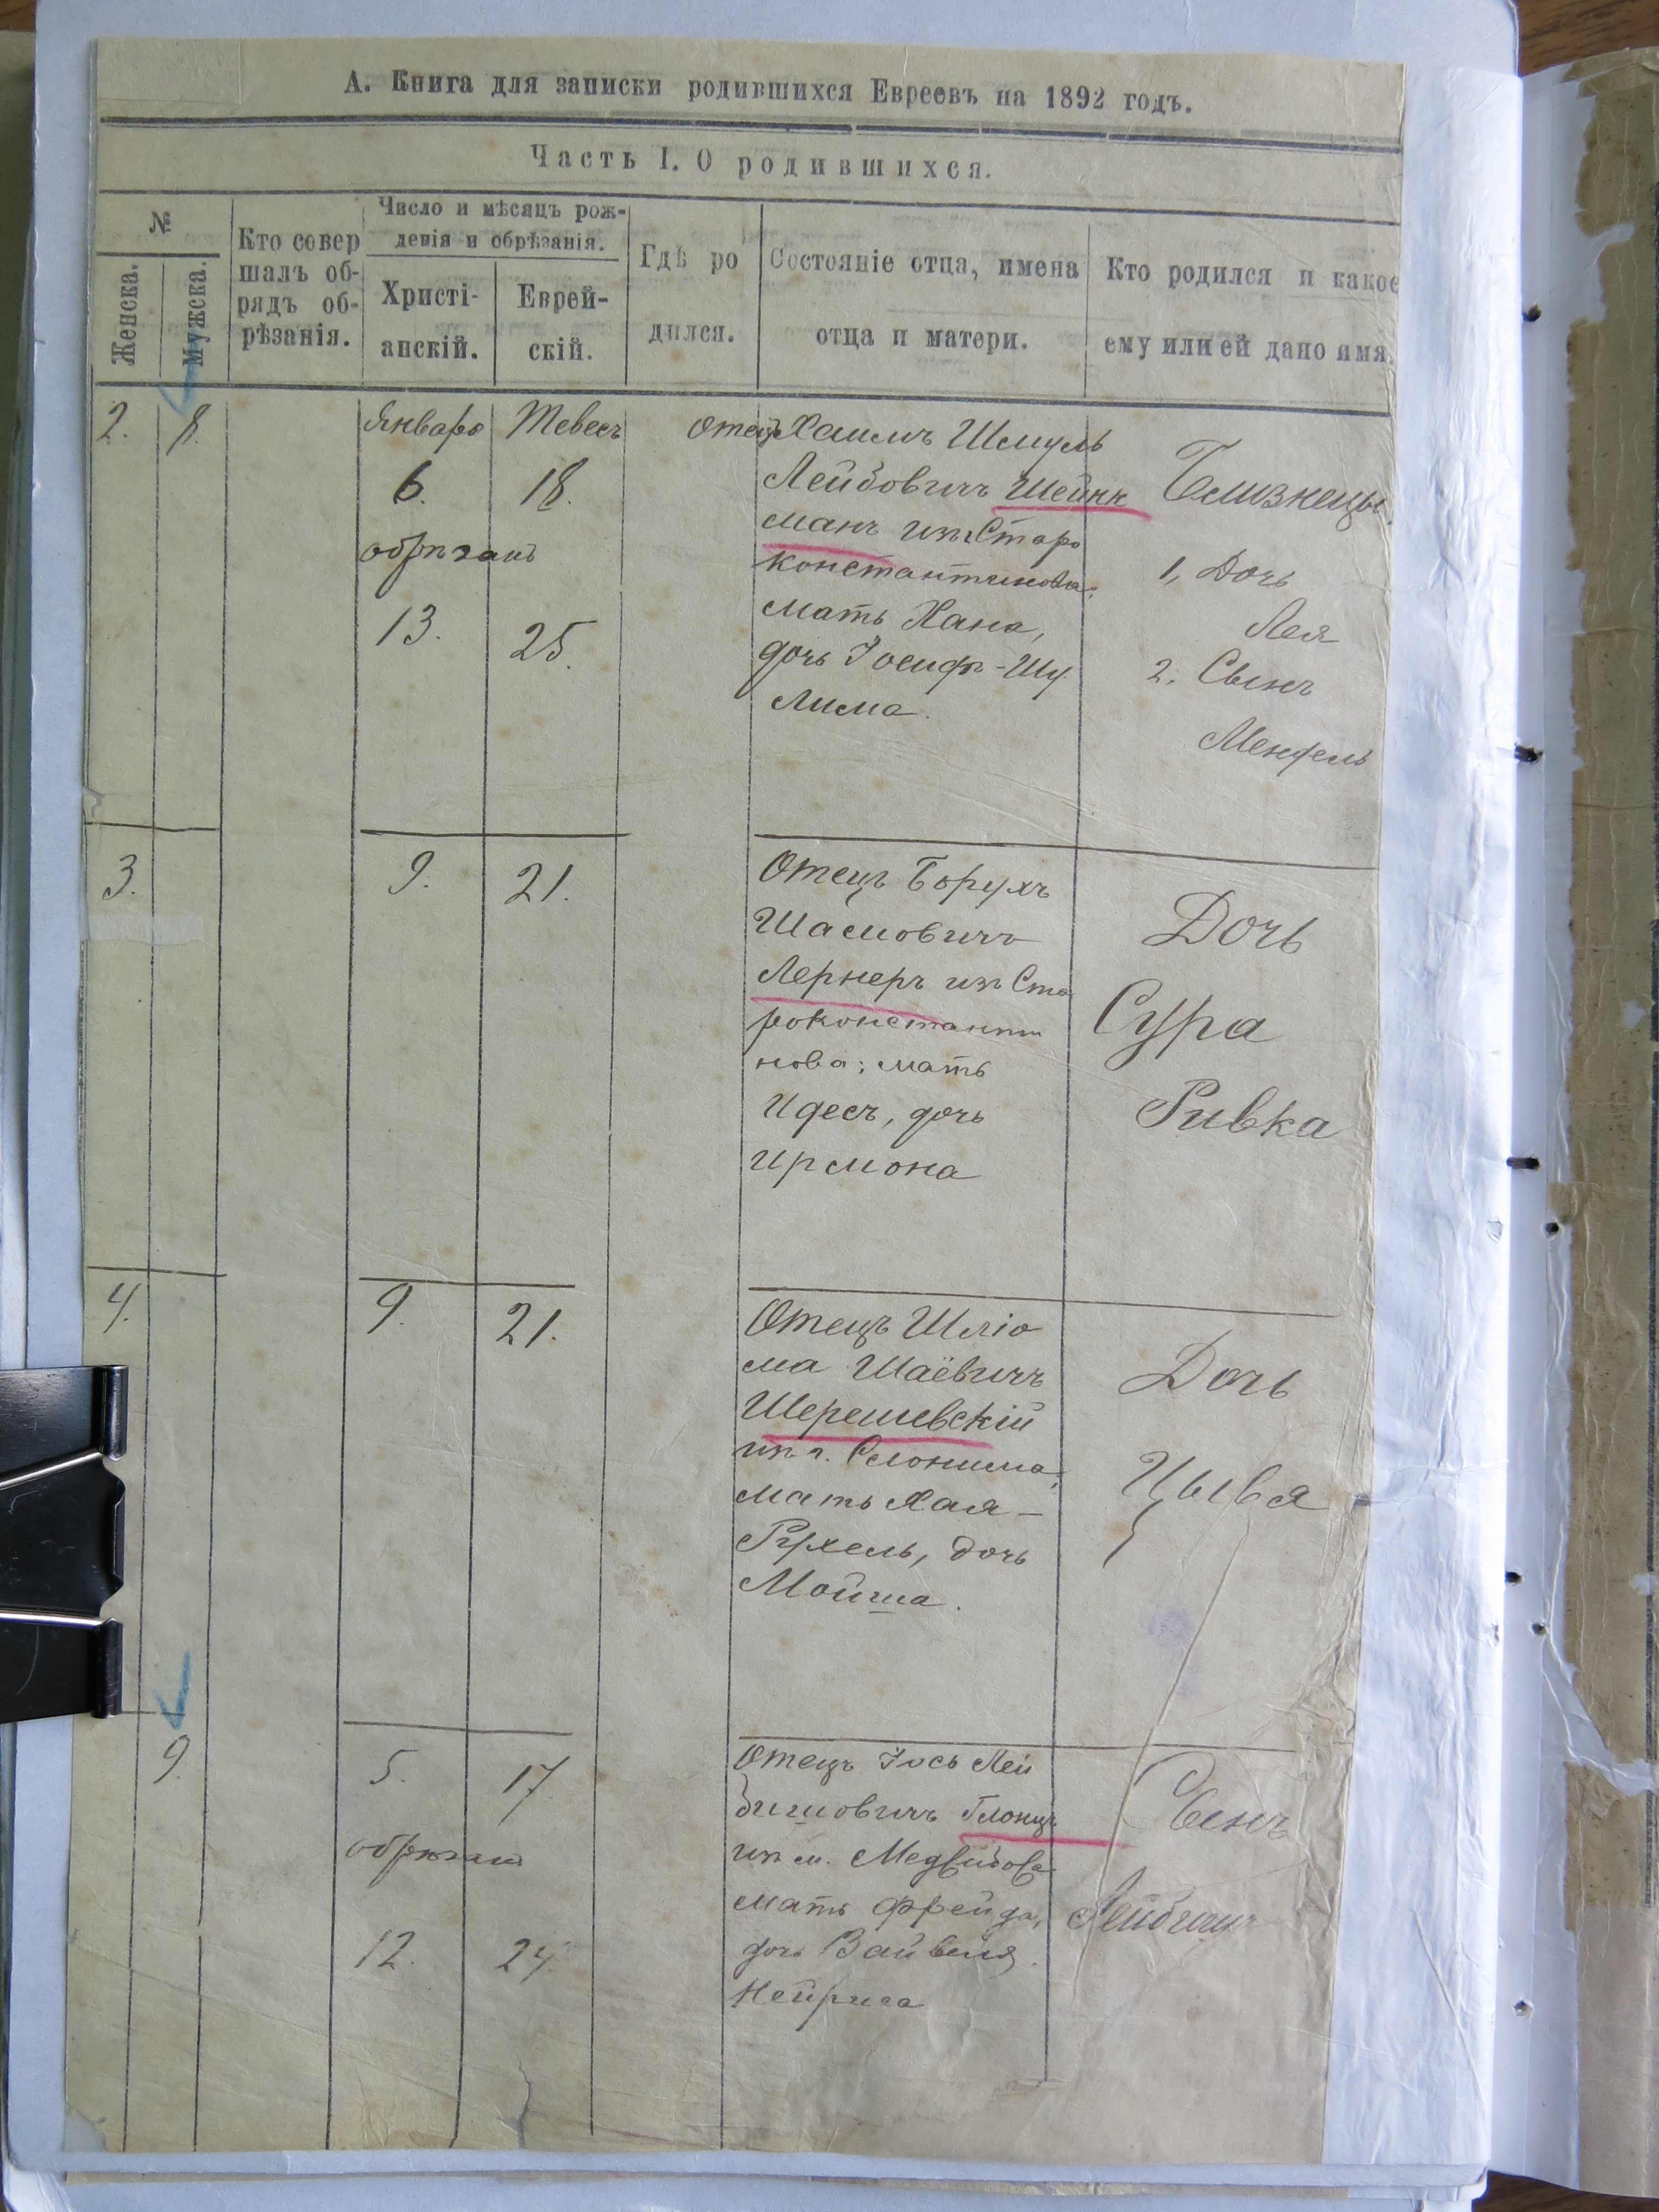 А. Книга для записки родившихся Евреевъ на 1892 годъ.
Часть I. О родившихся.
№
Женска.
Мужска.
Кто совер
шалъ об-
рядъ об-
рѣзанія.
Число и мѣсяцъ рож-
денія и обрѣзанія.
Христі-
анскій.
Еврей-
скій.
Гдѣ ро
дился.
Состояніе отца, имена
отца и матери.
Кто родился и какое
ему или ей дано имя.
2. 8.
Январь Тевесъ
6. 18.
обрѣзанъ
13. 25.
Отецъ Хаимъ Шмуль
Лейбовичъ Шейнк
манъ изъ Старо
константинова;
мать Хана,
дочь Іосифъ-Шу
лима.
Близнецы.
1, Дочь
Лея
2. Сынъ
Мендель
3.
9. 21.
Отецъ Борухъ
Шамовичъ
Лернеръ изъ Ста
роконстанти
нова; мать
Идесъ, дочь
Ирмона
Дочь
Сура
Ривка
4.
9. 21.
Отецъ Шліо
ма Шаёвичъ
Шерешевскій
изъ г. Слонима;
мать Хая-
Рухель, дочь
Мойша.
Дочь
Цывя
9.
5. 17
обрѣзанъ
12. 24.
Отецъ Іось Лей
бишовичъ
изъ м. Медвѣдова
мать Фрейда,
дочь Вайвеля
Сынъ
Лейбишъ